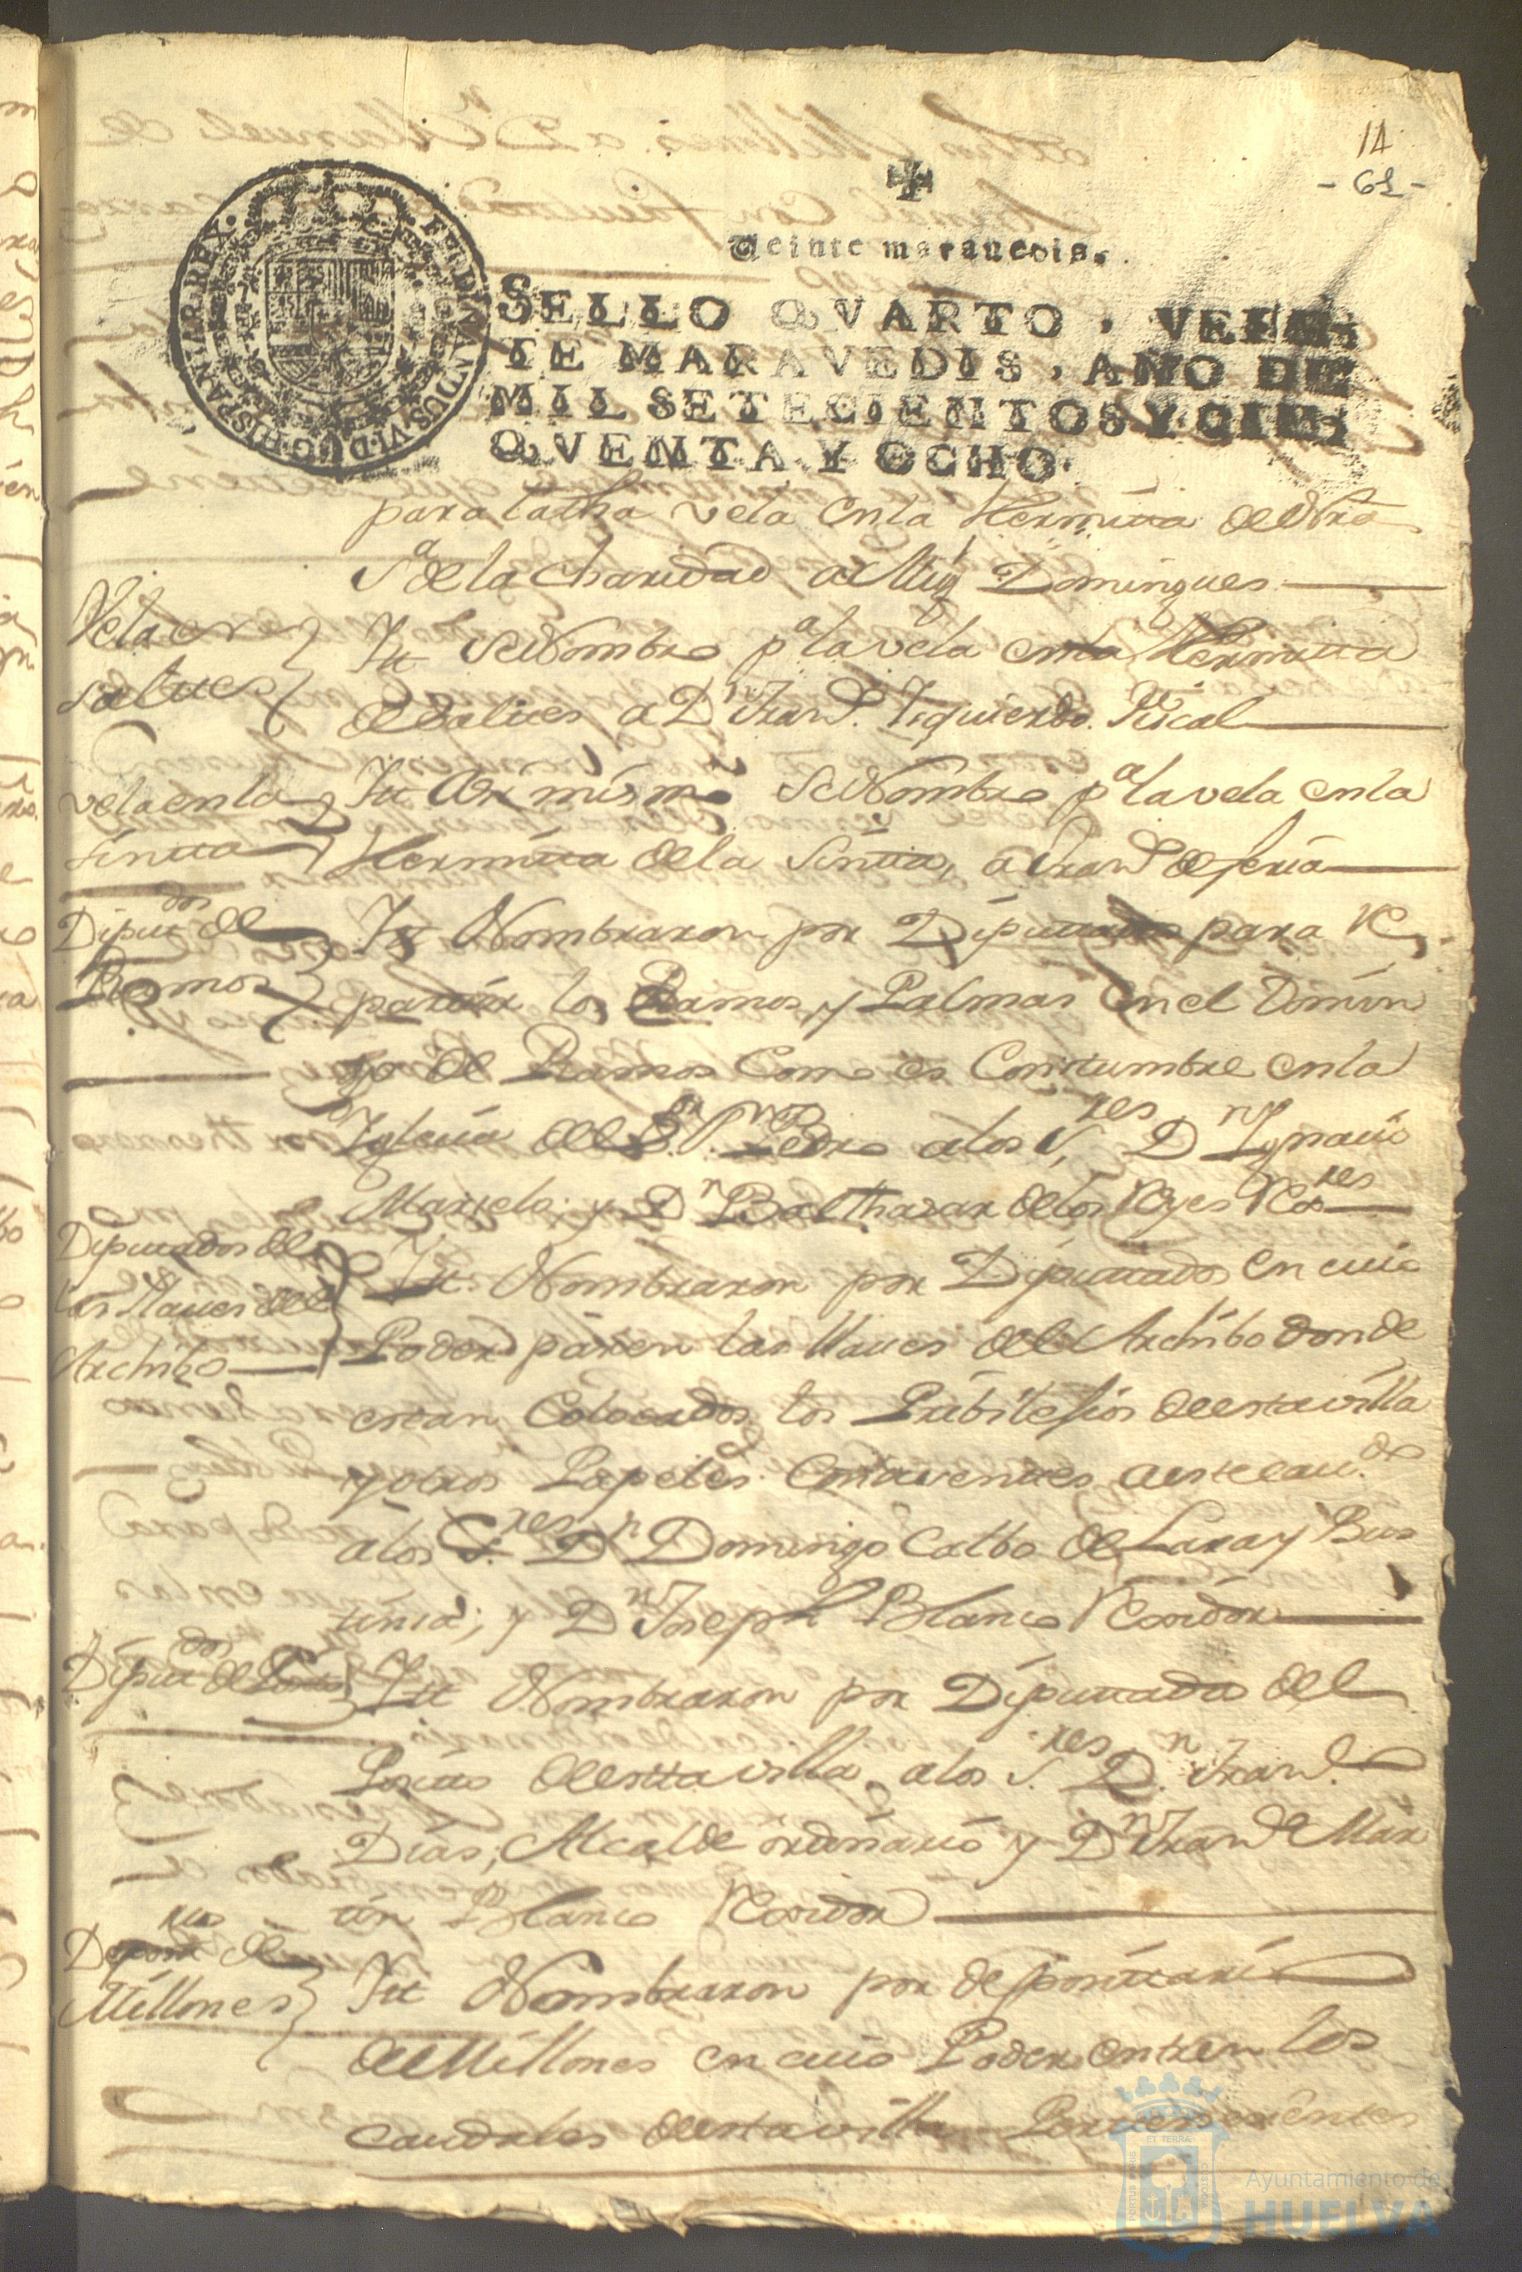 14
- 61 -
Veinte maravedis.
SELLO QVARTO, VEIN-
TE MARAVEDIS, AÑO DE
MIL SETECIENTOS Y CIN-
QVENTA Y OCHO.
FERDINANDUS VI D.G. HISPANIAR. REX.
para la dha vela en la Hermitta de Nra
Sa de la Charidad a Domingues
Vela en
saltes
Itt Se Nombro pa la vela en la Hermitta
de Saltes a Dn Franco Izquierdo Fiscal
vela en la
Sintta
Itt Asimismo Se Nombro pa la vela en la
Hermitta de la Sintta, a Franco de feria
Diputdos de
Ramos
Itt Nombraron por Diputtados para Re
parttir los Ramos y Palmas en el Domin
go de Ramos Como es Constumbre en la
Iglesia del Sor Sn Pedro a los Sres Dn Ygnacio
y Dn Balthazar de los Reyes Rexres
Diputtados de
las llaves del
Archibo
Itt Nombraron por Diputtados en cuio
Poder páren las llaves del Archibo donde
estan Colocados los Pribilejios de esta villa
y otros Papeles Conserventes a este cavdo
a los Sres Dn Domingo Calbo de Lara y Bus
y Dn Joseph Blanco Rexidor
Diputdos de Posito
Itt Nombraron por Diputtados del
Positto de estta villa a los Sres Dn Franco
Dias, Alcalde ordinario y Dn Franco Mar
tin Blanco Rexidor
Deposrio de
Millones
Itt Nombraron por depositario
de Millones en cuio Poder entren los
caudales de esta villa Perttenecientes
PORTUS MARIS ET TERRAE CUSTODIA
Ayuntamiento de
HUELVA